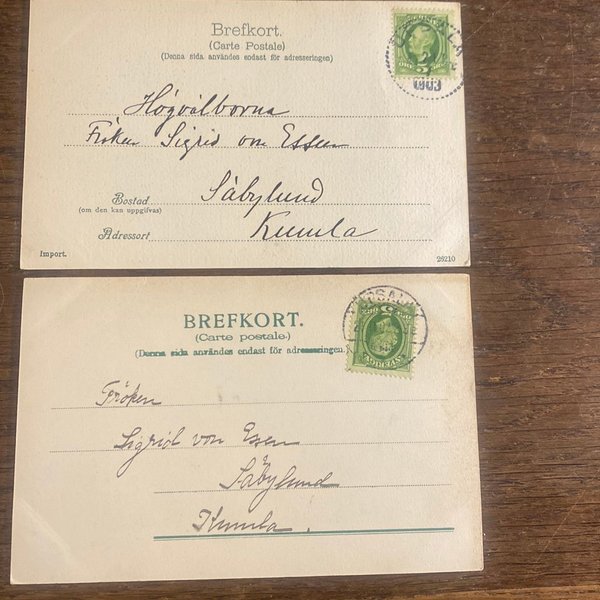 Brefkort.
(Carte Postale)
(Denna sida användes endast för adresseringen)
UPSALA
1903
5 ÖRE
Högvälborna
Fröken Sigrid von Essen
Bostad
(om den kan uppgifvas)
Såbylund
Adressort
Kumla
Import.
26210
BREFKORT.
(Carte postale.)
(Denna sida användes endast för adresseringen.)
UPSALA
SVERIGE
Fröken
Sigrid von Essen
Såbylund
Kumla.